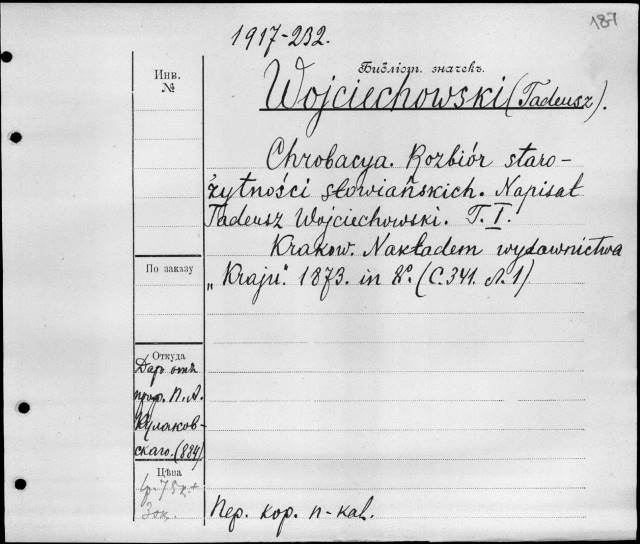 187
1917-232.
Инв. №
Библіот. значекъ.
Wojciechowski (Tadeusz).
Chrobacya. Rozbiór staro-
żytności słowiańskich. Napisał
Tadeusz Wojciechowski. T. I.
Krakow. Nakładem wydawnictwa
По заказу
„Kraju". 1873. in 8°. (С. 341. л. 1)
Откуда
Даръ отъ
проф. П. А.
Кулаков-
скаго. (884)
Цѣна
Пер. кор. п-кал.